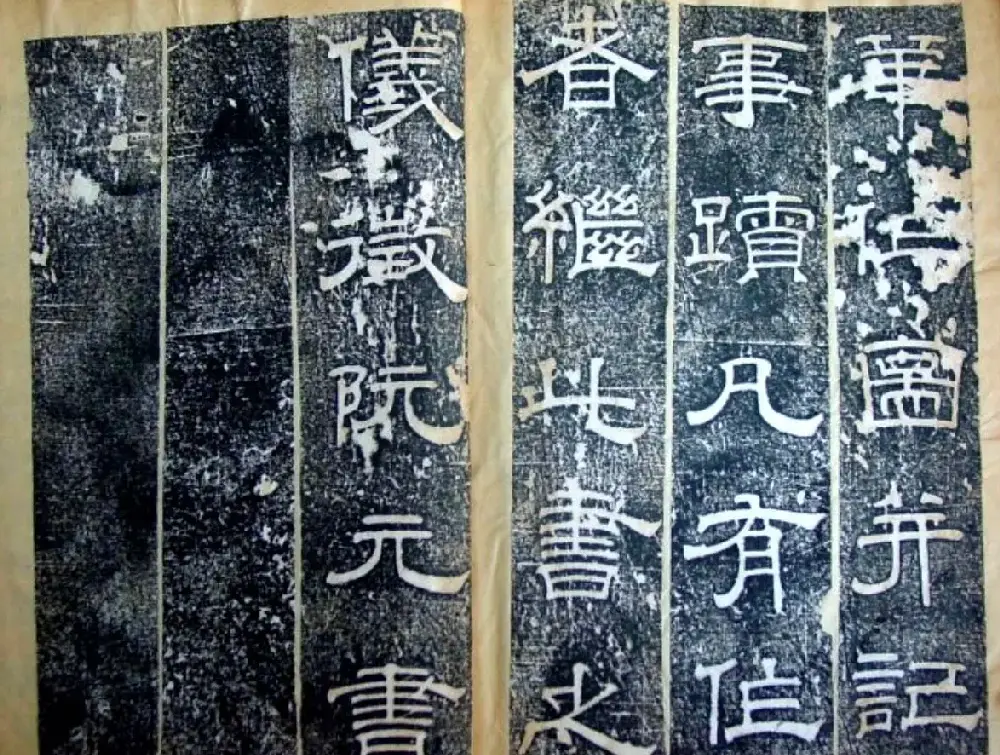 圖并記
事蹟凡有作
者繼此書之
儀徵阮元書